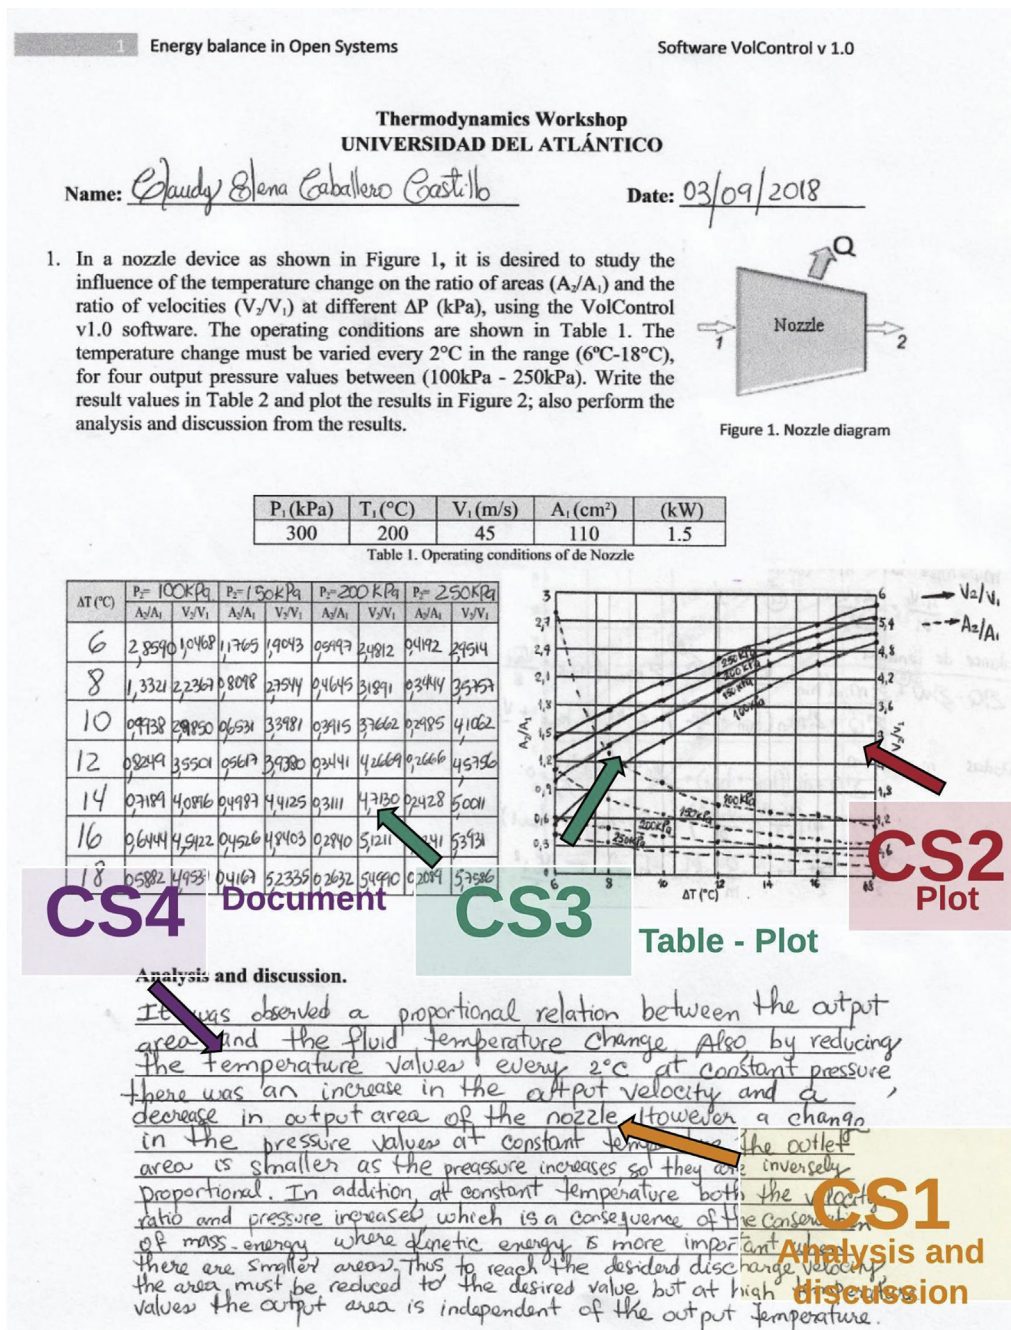 1 Energy balance in Open Systems Software VolControl v 1.0
Thermodynamics Workshop
UNIVERSIDAD DEL ATLÁNTICO
Name: Claudy Elena Caballero Castillo Date: 03/09/2018
1. In a nozzle device as shown in Figure 1, it is desired to study the
influence of the temperature change on the ratio of areas (A₂/A₁) and the
ratio of velocities (V₂/V₁) at different ΔP (kPa), using the VolControl
v1.0 software. The operating conditions are shown in Table 1. The
temperature change must be varied every 2°C in the range (6°C-18°C),
for four output pressure values between (100kPa - 250kPa). Write the
result values in Table 2 and plot the results in Figure 2; also perform the
analysis and discussion from the results.
Q
Nozzle
1
2
Figure 1. Nozzle diagram
P₁ (kPa) T₁ (°C) V₁ (m/s) A₁ (cm²) (kW)
300 200 45 110 1.5
Table 1. Operating conditions of de Nozzle
ΔT (°C) P₂= 100KPa P₂= 150KPa P₂= 200KPa P₂= 250KPa
A₂/A₁ V₂/V₁ A₂/A₁ V₂/V₁ A₂/A₁ V₂/V₁ A₂/A₁ V₂/V₁
6 2,8590 1,0468 1,1765 1,9043 0,5997 2,4812 0,4192 2,9514
8 1,3321 2,2367 0,8098 2,7544 0,4645 3,1891 0,3444 3,5757
10 0,9938 2,9850 0,6531 3,3981 0,3915 3,7662 0,2985 4,1062
12 0,8249 3,5501 0,5617 3,9380 0,3441 4,2669 0,2666 4,5756
14 0,7189 4,0896 0,4987 4,4125 0,3111 4,7130 0,2428 5,0011
16 0,6444 4,5422 0,4526 4,8403 0,2840 5,1211 5,3931
18 0,5882 0,4167 5,2335 0,2632 5,4990 0,2089 5,7586
V₂/V₁
A₂/A₁
3
2,7
2,4
2,1
1,8
1,5
1,2
0,6
0,3
A₂/A₁
6
5,4
4,8
4,2
3,6
3
1,8
1,2
V₂/V₁
250KPa
200KPa
150KPa
100KPa
150KPa
200KPa
250KPa
6 8 10 12 14 16 18
ΔT (°C)
CS2
Plot
CS4
Document
CS3
Table - Plot
Analysis and discussion.
It was observed a proportional relation between the output
area and the fluid temperature change. Also by reducing
the temperature values every 2°C at constant pressure
there was an increase in the output velocity and a
decrease in output area of the nozzle. However a change
in the pressure values at constant the outlet
area is smaller as the preassure increases so they are inversely
proportional. In addition, at constant temperature both the velocity
ratio and pressure increases which is a consequence of the conservation
of mass-energy where Kinetic energy is more important when
there are smaller areas. Thus to reach the desiderd discharge velocity,
the area must be reduced to the desired value but at high temperature
values the output area is independent of the output temperature.
CS1
Analysis and
discussion